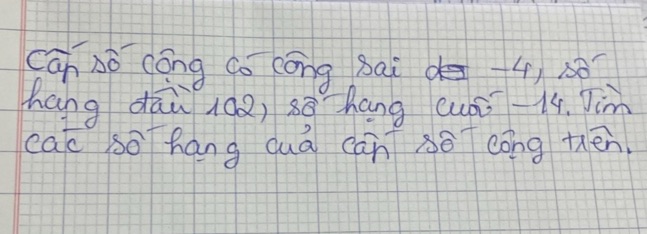 Cấp số cộng có công sai -4, số
hạng đầu 102, số hạng cuối -14. Tìm
các số hạng của cấp số cộng trên.